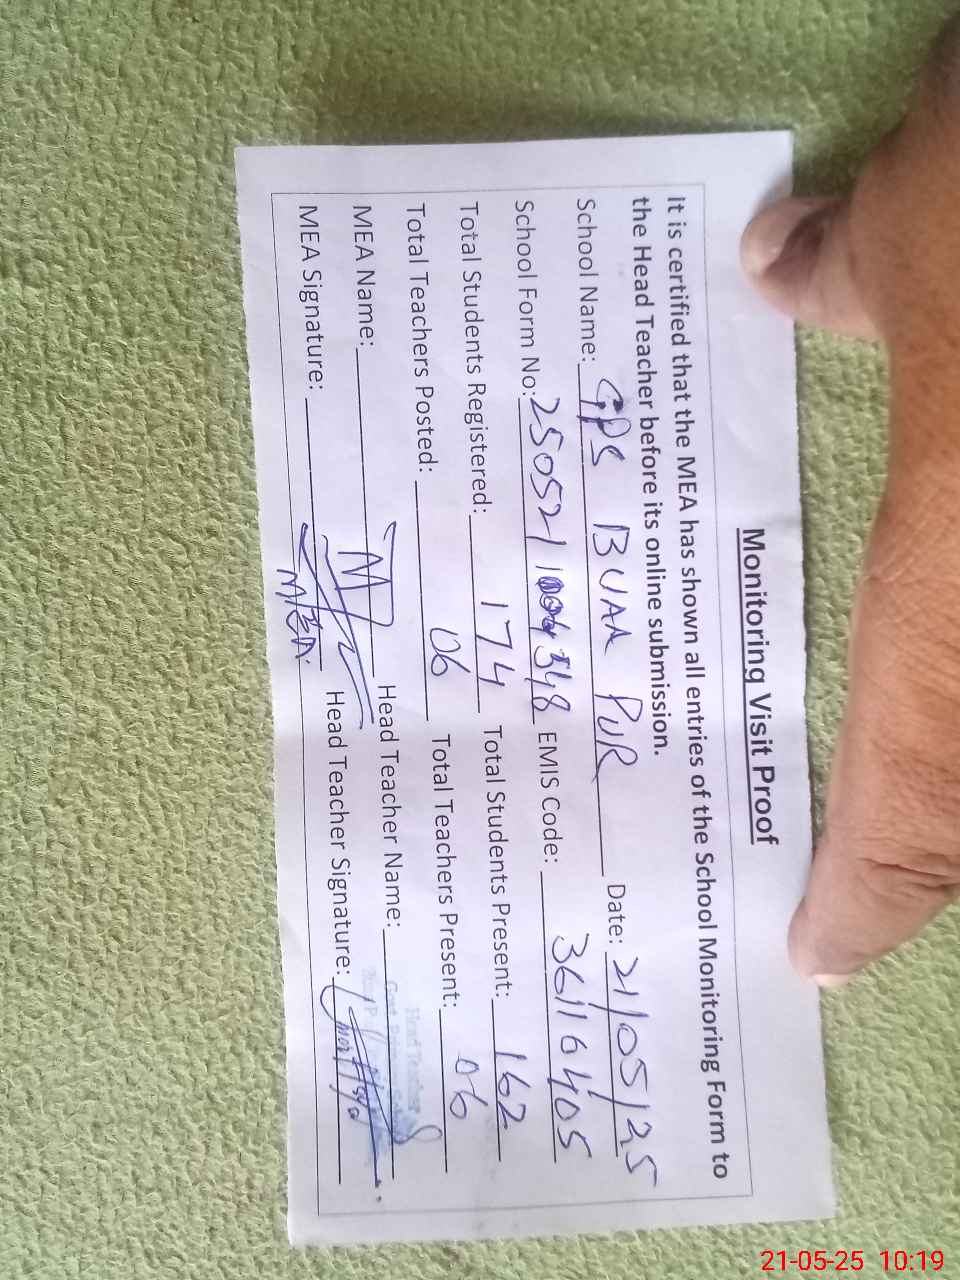 Monitoring Visit Proof
It is certified that the MEA has shown all entries of the School Monitoring Form to
the Head Teacher before its online submission.
School Name: GPS BUAA PUR Date: 21/05/25
School Form No: 250521 348 EMIS Code: 36116405
Total Students Registered: 174 Total Students Present: 162
Total Teachers Posted: 06 Total Teachers Present: 06
MEA Name: Head Teacher Name:
Head Teacher
MEA Signature: MEA Head Teacher Signature:
21-05-25 10:19